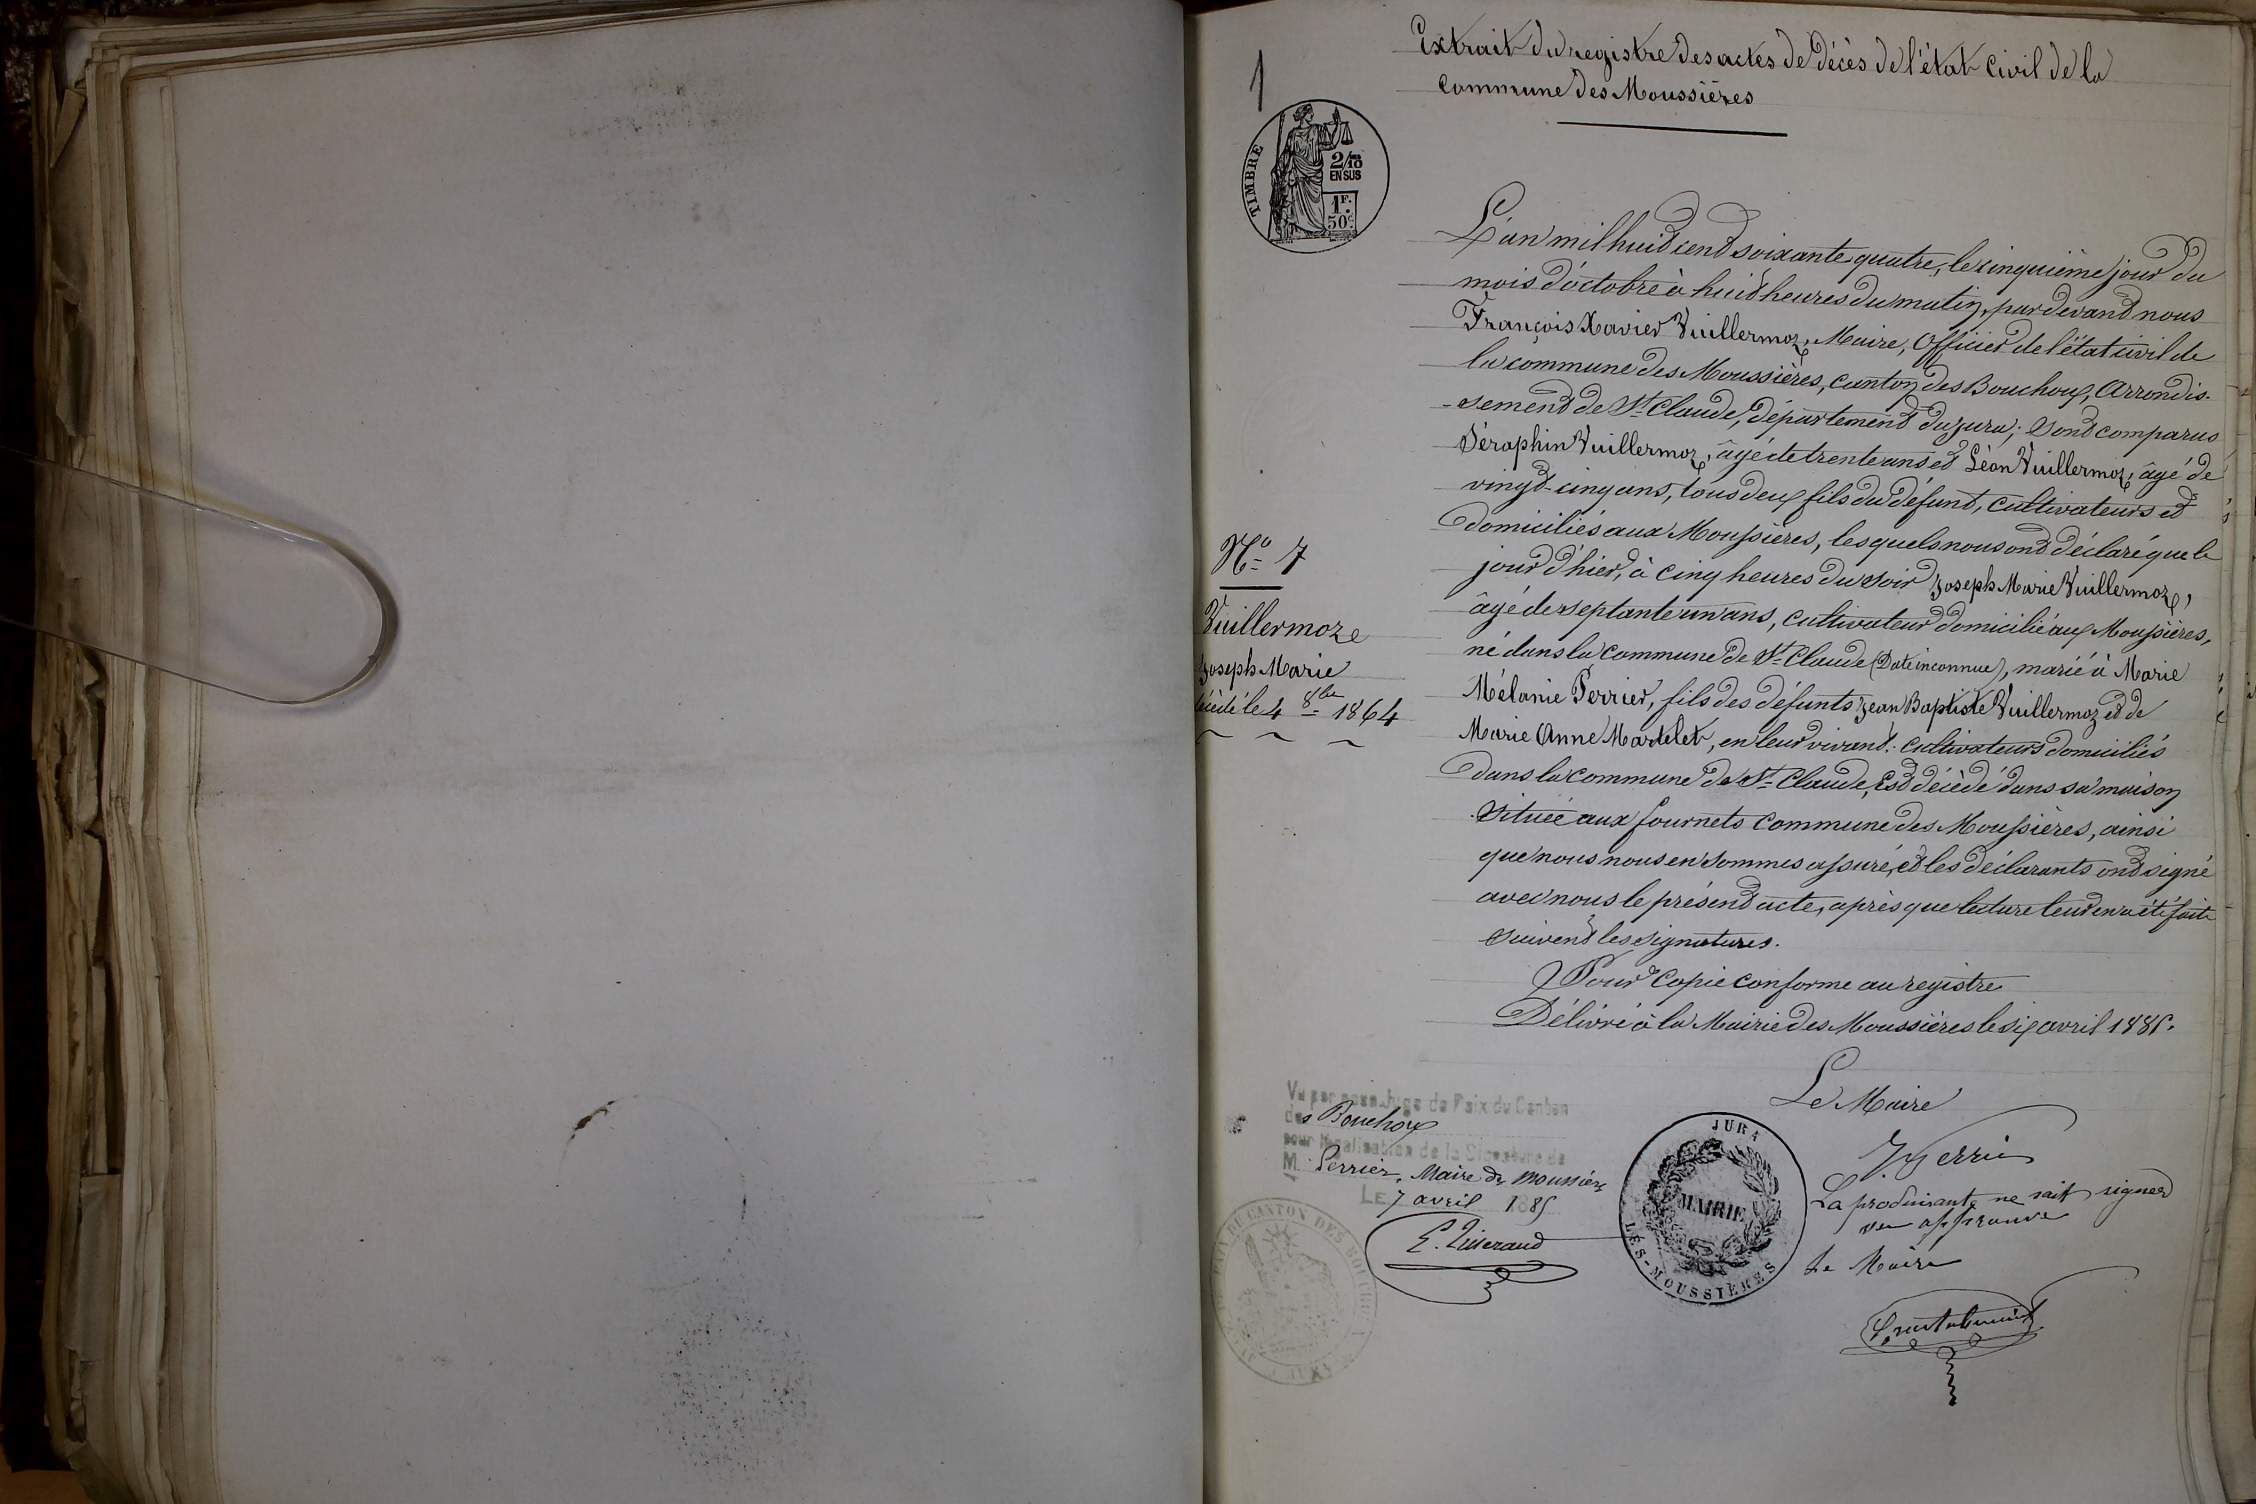 1
Extrait du registre des actes de décès de l'état civil de la
commune des Moussières
TIMBRE
2/10
EN SUS
1F.
50c.
L'an mil huit cent soixante quatre, le cinquième jour du
mois d'octobre à huit heures du matin, par devant nous
François Xavier Vuillermoz, Maire, Officier de l'état civil de
la commune des Moussières, canton des Bouchoux, Arrondis-
-sement de St Claude, département du Jura; Sont comparus
Séraphin Vuillermoz, âgé de trente ans et Léon Vuillermoz, âgé de
vingt-cinq ans, tous deux fils du défunt, cultivateurs et
domiciliés aux Moussières, lesquels nous ont déclaré que le
jour d'hier, à cinq heures du soir Joseph Marie Vuillermoz,
âgé de septante un ans, cultivateur domicilié aux Moussières,
né dans la commune de St Claude (Date inconnue), marié à Marie
Mélanie Perrier, fils des défunts Jean Baptiste Vuillermoz et de
Marie Anne Martelet, en leur vivant cultivateurs domiciliés
dans la commune de St Claude, Est décédé dans sa maison
située aux fournets commune des Moussières, ainsi
que nous nous en sommes assuré, et les déclarants ont signé
avec nous le présent acte, après que lecture leur en a été faite
suivent les signatures.
Pour copie conforme au registre
Délivré à la Mairie des Moussières le six avril 1885.
No 7
Vuillermoze
Joseph Marie
décédé le 4 8bre 1864
Le Maire
Perrier
La produisante ne sait signer
approuvé
Le Maire
Vu par nous Juge de Paix du Canton
des Bouchoux
pour légalisation de la Signature de
M. Perrier, Maire des Moussières
LE 7 avril 1885
JURA
MAIRIE
LES-MOUSSIÈRES
CANTON DES BOUCHOUX